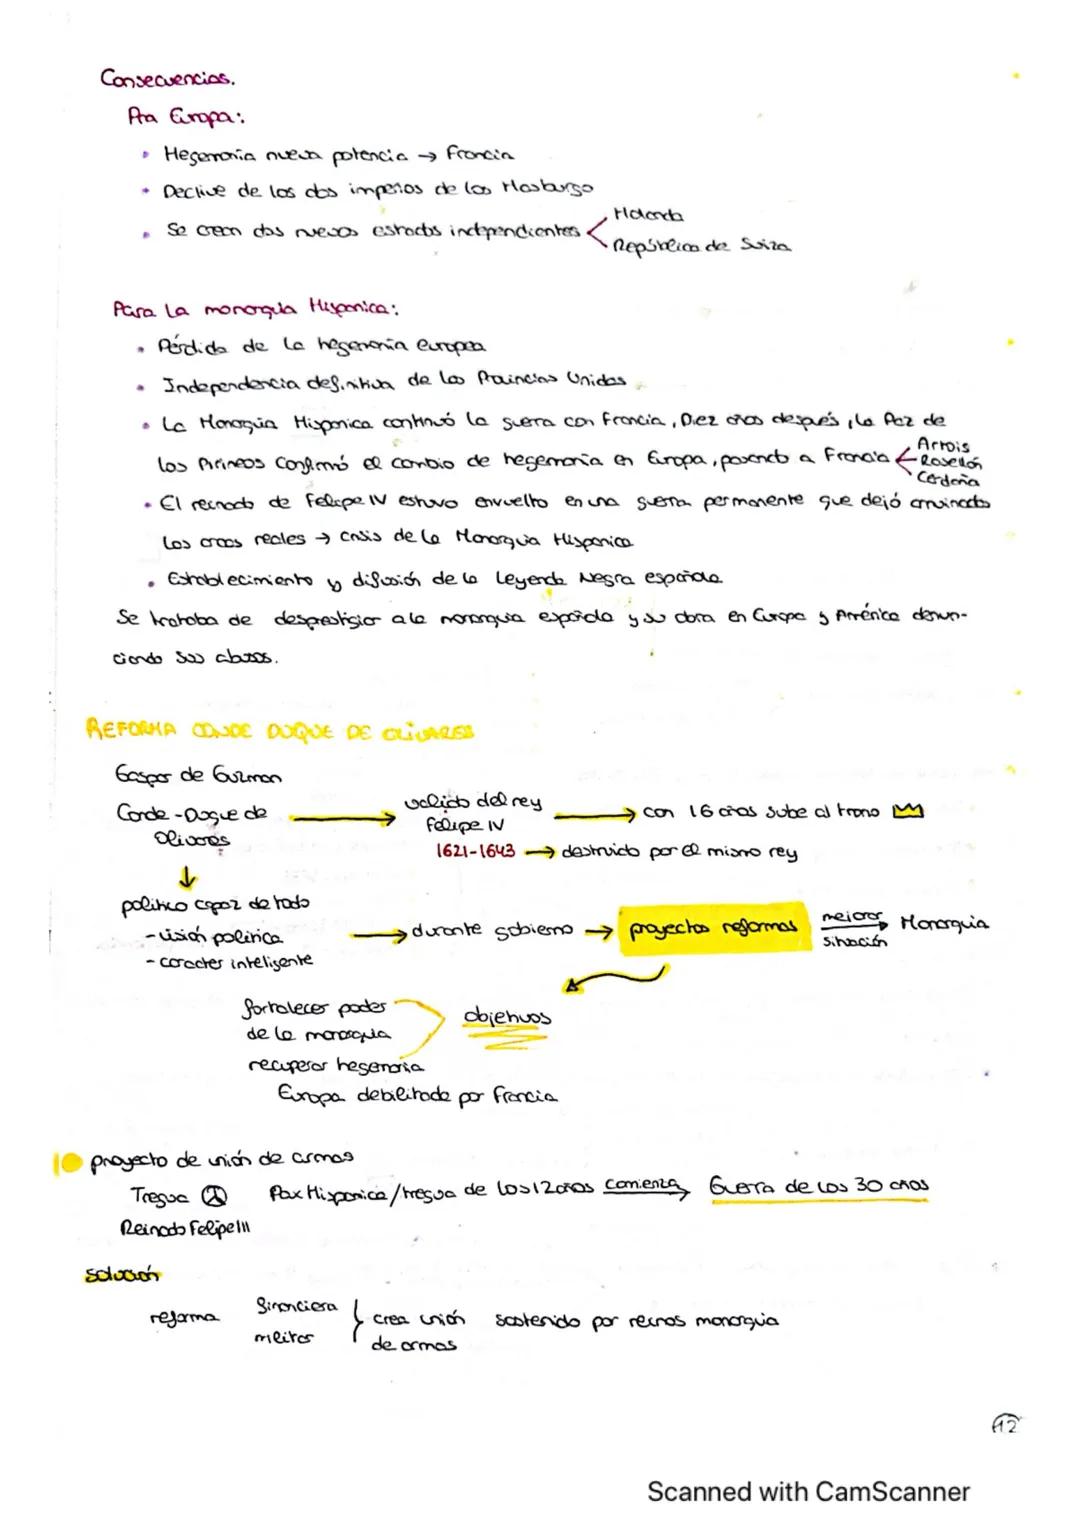 Consecuencias.
Pra Europa:
• Hegemonía nueva potencia → Francia
• Declive de los dos imperios de los Hasburgo
• Se crean dos nuevos estados independientes < Holanda
República de Suiza
Para la monarquía Hispanica:
• Pérdida de la hegemonía europea
• Independencia definitiva de las Provincias Unidas
• La Monarquía Hispanica continuó la guerra con Francia, Diez años después, la Paz de
los Pirineos Confirmó el cambio de hegemonía en Europa, pasando a Francia < Artois
Rosellón
Cerdaña
• El reinado de Felipe IV estuvo envuelto en una guerra permanente que dejó arruinadas
las arcas reales → crisis de la Monarquía Hispanica
• Establecimiento y difusión de la Leyenda Negra española
Se trataba de desprestigiar a la monarquía española y su obra en Europa y América denun-
ciando sus abusos.
REFORMA CONDE DUQUE DE OLIVARES
Gaspar de Guzman
Conde-Duque de Olivares → valido del rey Felipe IV → con 16 años sube al trono
1621-1643 → destruido por el mismo rey
↓
politico capaz de todo
- visión política
- caracter inteligente
→ durante gobierno → proyectos reformas mejorar situación → Monarquia
fortalecer poder
de la monarquia
objetivos
recuperar hegemonia
Europa debilitada por Francia
1º proyecto de unión de armas
Tregua Pax Hispanica/tregua de los 12 años comienza → Guerra de los 30 años
Reinado Felipe III
solución
reforma financiera
militar } crea unión de armas sostenido por reinos monarquia
12
Scanned with CamScanner